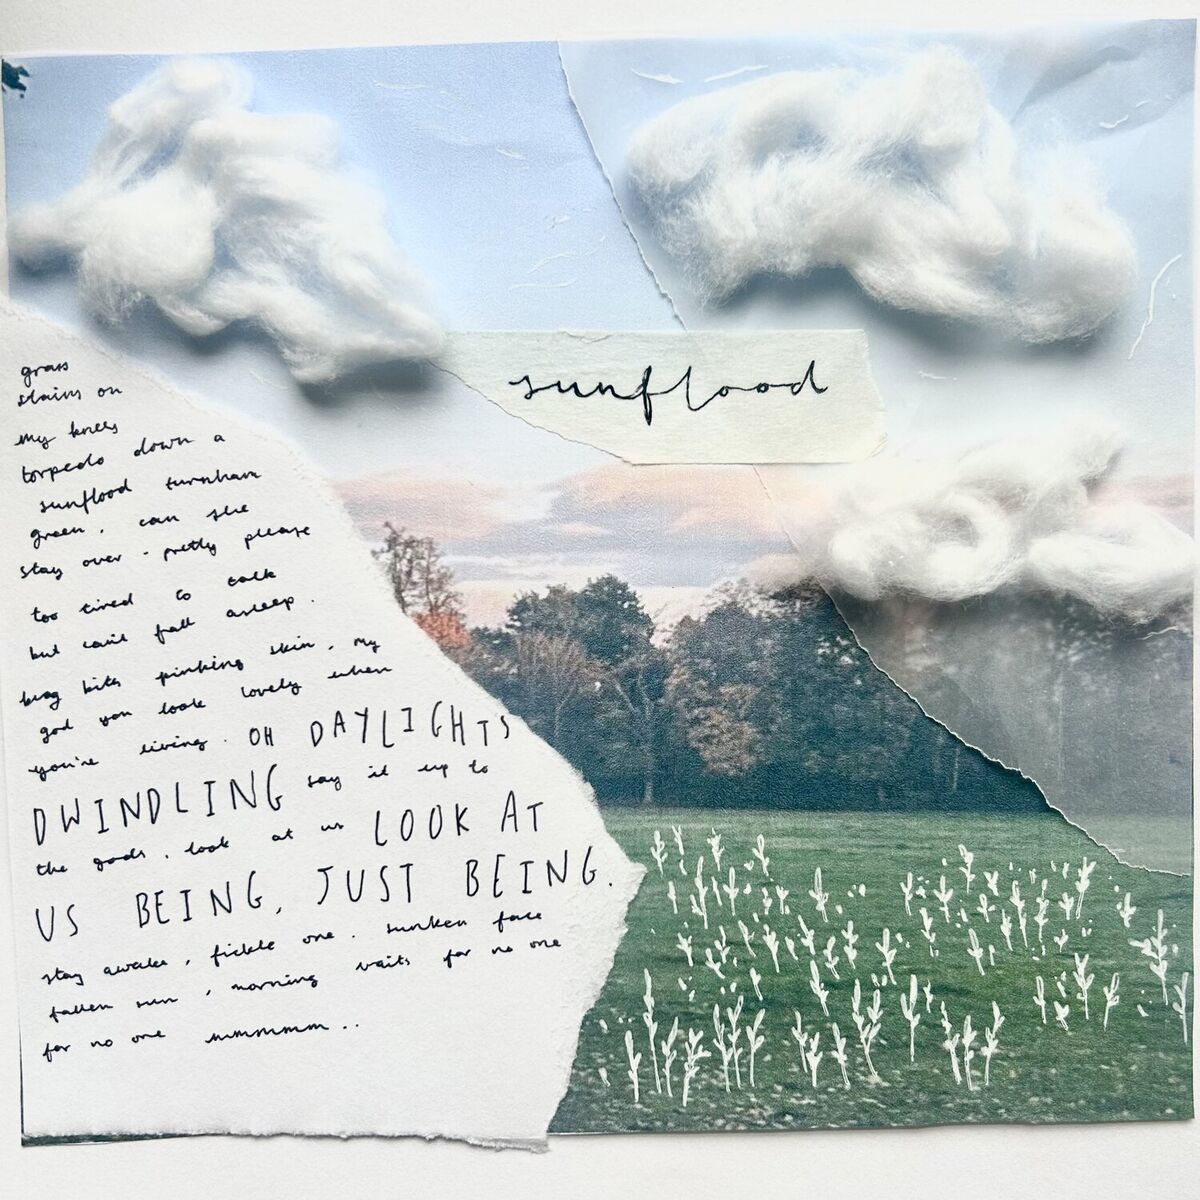 sunflood
grass
stains on
my knees
torpedo down a
sunflood turnham
green, can she
stay over - pretty please
too tired to talk
but can't fall asleep.
bug bites pinking skin, my
god you look lovely when
you're living. OH DAYLIGHTS
DWINDLING say it up to
the gods, look at us LOOK AT
US BEING, JUST BEING.
stay awake, fickle one. sunken face
fallen sun, morning waits for no one
for no one mmmmmm..